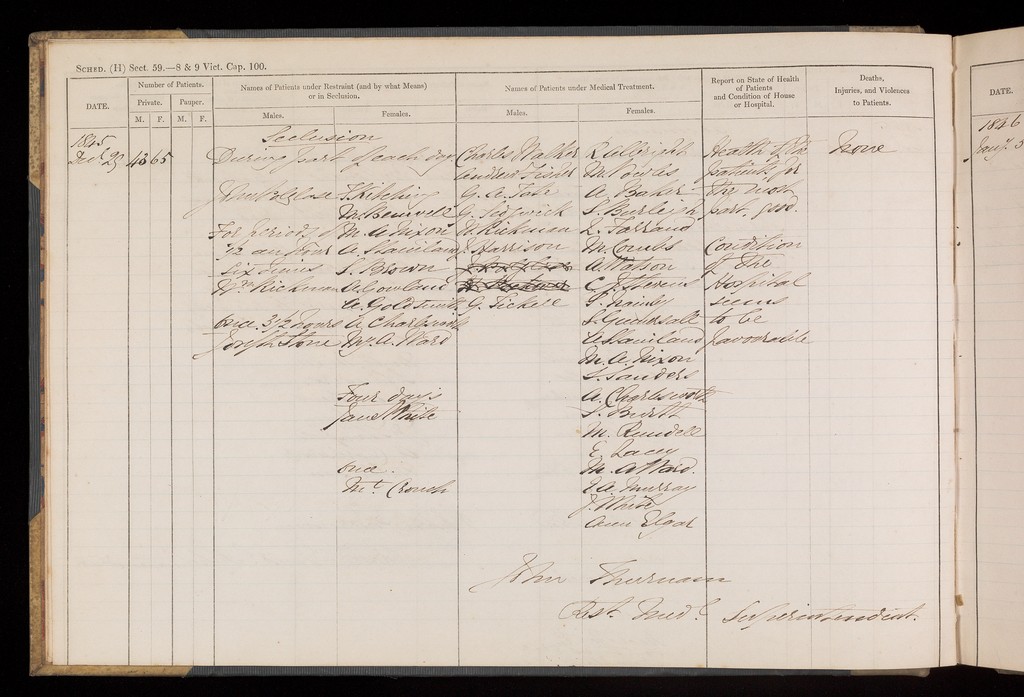 SCHED. (H) Sect. 59.—8 & 9 Vict. Cap. 100.
DATE.
Number of Patients.
Private.
Pauper.
M.
F.
M.
F.
Names of Patients under Restraint (and by what Means)
or in Seclusion.
Males.
Females.
Names of Patients under Medical Treatment.
Males.
Females.
Report on State of Health
of Patients
and Condition of House
or Hospital.
Deaths,
Injuries, and Violences
to Patients.
1845
Decr 29
43 65
Seclusion
During part of each day
For periods of
1/2 an hour
six times
Wm Rickman
once 3 1/2 hours
Joseph Stone
M. Bramwell
M. A. Nixon
A. Staniland
S. Brown
A. Gowland
A. Goldsmith
A. Charlesworth
My. A. Ward
Four days
Jane White
once.
Mt. Crouch
Charles Walker
Andrew Fisher
G. A. Tate
G. Sidgwick
W. Rickman
J. Harrison
G. Tickell
R. Allbright
M. Cowles
A. Baker
S. Burleigh
L. Farrand
M. Coombs
A. Watson
C. J. Stevens
A. Staniland
M. A. Nixon
S. Sanders
A. Charlesworth
S. Burtt
M. Rundell
E. Lacey
M. A. Ward.
J. A. Murray
J. White
Ann Elgar
Health of the
patients for
the most
part good.
Condition
of the
Hospital
seems
to be
favourable
None
John Thurnam
Rest. Medl. Superintendent.
DATE.
1846
Jany. 5